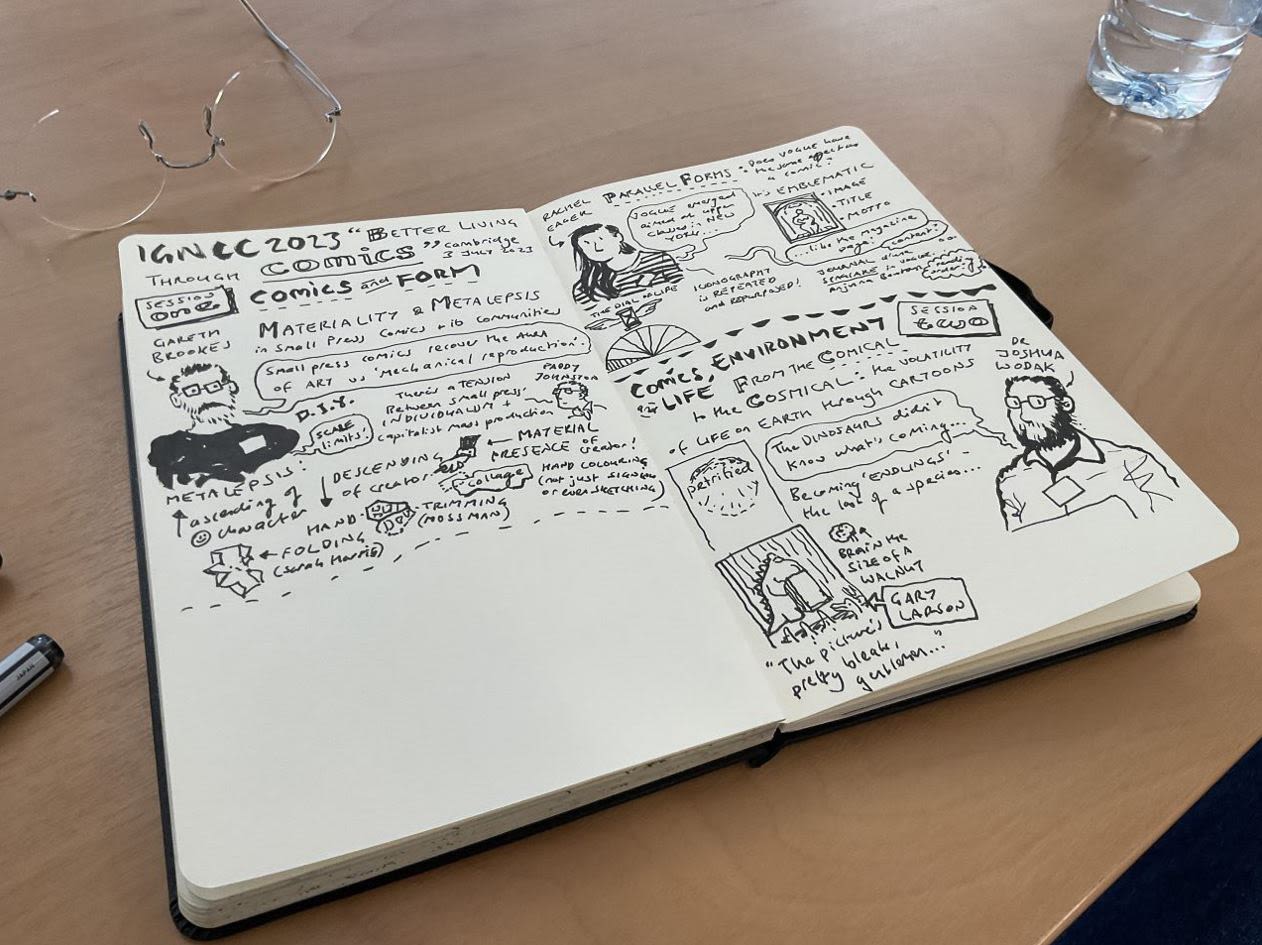 IGNCC 2023 "BETTER LIVING
THROUGH COMICS" Cambridge
3 JULY 2023
SESSION
one
COMICS and FORM
GARETH
BROOKES
MATERIALITY & METALEPSIS
in small press comics + its communities
Small press comics recover the AURA
of ART vs 'mechanical reproduction'.
D.I.Y.
SCALE
limits!
There's a TENSION
Between small press'
INDIVIDUALISM +
capitalist mass production
PADDY
JOHNSTON
METALEPSIS:
ascending of
character
DESCENDING
of creator
MATERIAL
PRESENCE of
creator!
collage
HAND COLOURING
(not just SIGNING
or even SKETCHING)
HAND-
TRIMMING
(MOSSMAN)
FOLDING
(Sarah Harris)
RACHEL
EAGER
PARALLEL FORMS: Does VOGUE have
the same
a comic?
VOGUE emerged
aimed at upper
classes in NEW
YORK...
It's EMBLEMATIC
• IMAGE
• TITLE
• MOTTO
...like the magazine
page!
content:
ICONOGRAPHY
is REPEATED
and REPURPOSED!
THE DIAL OF LIFE
JOURNAL
in Vogue
SESSION
two
COMICS, ENVIRONMENT
and LIFE
FROM THE COMICAL
to the COSMICAL: the VOLATILITY
of LIFE on EARTH through CARTOONS
DR
JOSHUA
WODAK
The DINOSAURS didn't
know what's coming...
petrified
Becoming 'ENDLINGS' -
the last of a species...
BRAIN the
SIZE OF A
WALNUT
GARY
LARSON
"The picture's
pretty bleak,
gentlemen..."
JAPAN